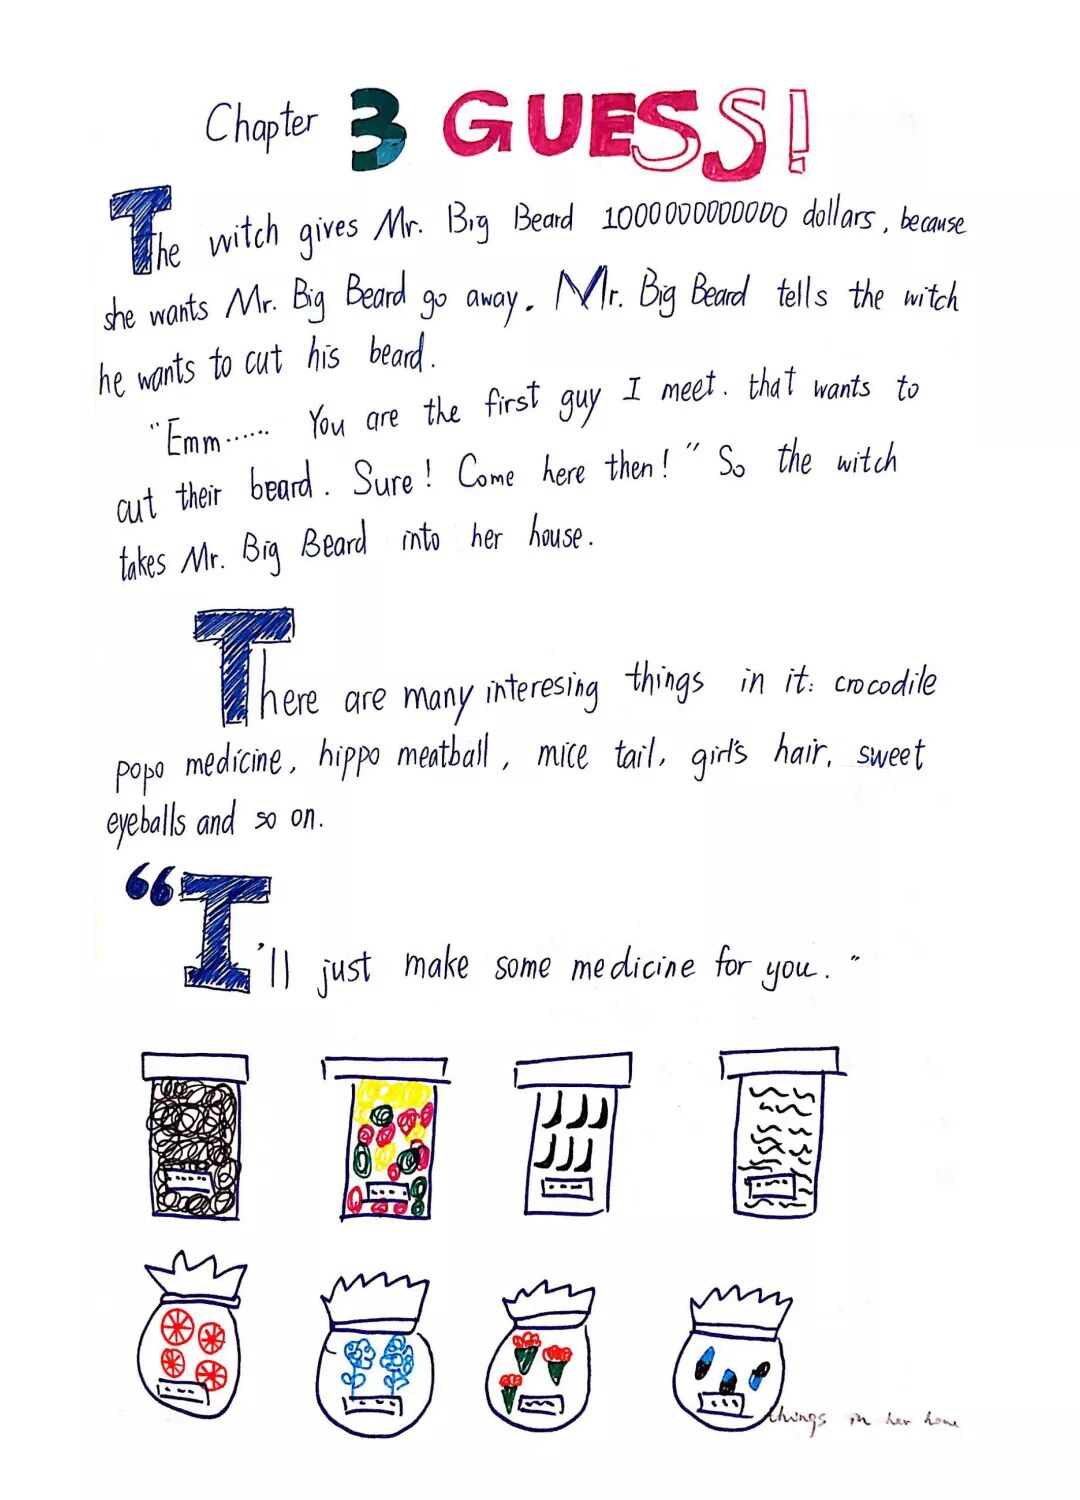 Chapter 3 GUESS!
The witch gives Mr. Big Beard 1000000000000 dollars, because
she wants Mr. Big Beard go away. Mr. Big Beard tells the witch
he wants to cut his beard.
"Emm...... You are the first guy I meet. that wants to
cut their beard. Sure! Come here then!" So the witch
takes Mr. Big Beard into her house.
There are many interesing things in it: crocodile
popo medicine, hippo meatball, mice tail, girl's hair, sweet
eyeballs and so on.
"I'll just make some medicine for you."
things in her home